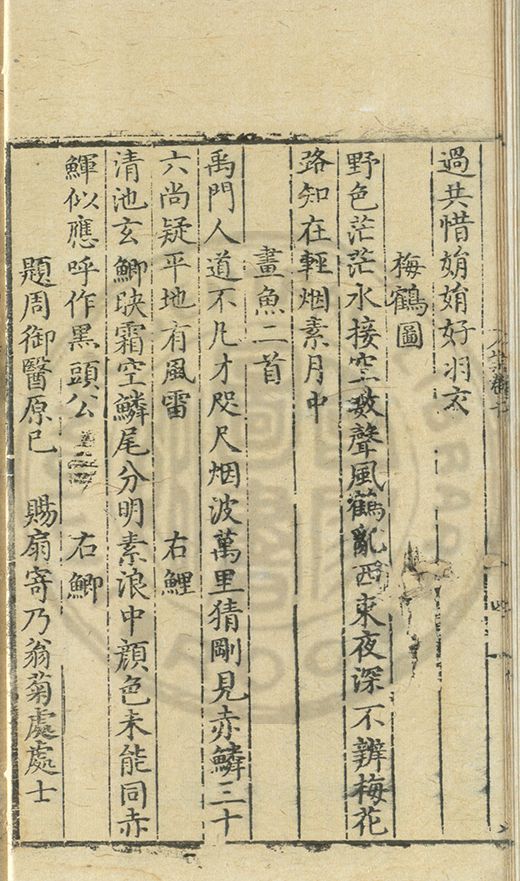 過共惜娟娟好羽衣
梅鶴圖
野色茫茫水接空數聲風鶴亂西東夜深不辨梅花
路知在輕烟素月中
畫魚二首
禹門人道不凡才咫尺烟波萬里猜剛見赤鱗三十
六尚疑平地有風雷 右鯉
清池玄鯽映霜空鱗尾分明素浪中顔色未能同赤
鯶似應呼作黑頭公 右鯽
題周御醫原已 賜扇寄乃翁菊處處士